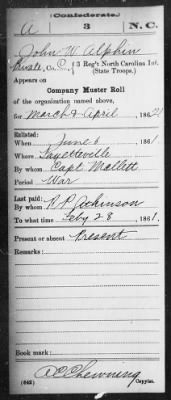 (Confederate.)
A 3 N.C.
John W. Alphin
Private, Co. C, 3 Reg't North Carolina Inf.
(State Troops.)
Appears on
Company Muster Roll
of the organization named above,
for March & April, 1862
Enlisted:
When June 6, 1861
Where Fayetteville
By whom Capt Mallett
Period War
Last paid:
By whom R P Atkinson
To what time Feby 28, 1861.
Present or absent Present
Remarks:
Book mark:
(642) Chewning
Copyist.